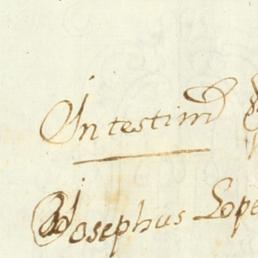 In testimd
Josephus Lope